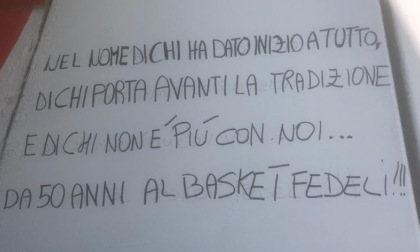 NEL NOME DI CHI HA DATO INIZIO A TUTTO,
DI CHI PORTA AVANTI LA TRADIZIONE
E DI CHI NON É PIÚ CON NOI...
DA 50 ANNI AL BASKET FEDELI!!!